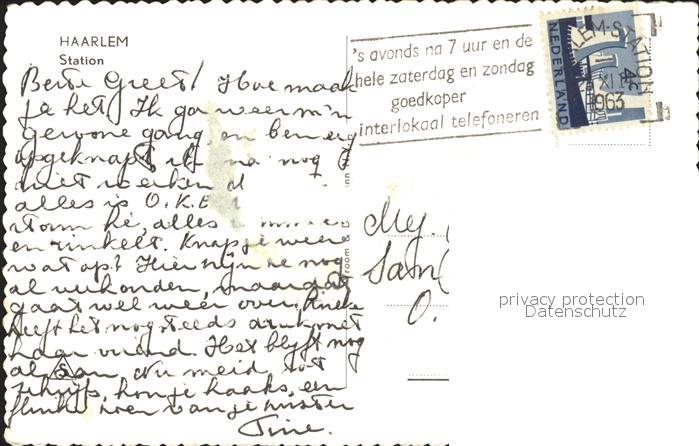 HAARLEM
Station
's avonds na 7 uur en de
hele zaterdag en zondag
goedkoper
interlokaal telefoneren
NEDERLAND
4c
XI
1963
Beste Greet! Hoe maak
je het. Ik ga weer m'n
gewone gang, en ben erg
opgeknapt, ik na nog
niet werken
alles is O.K. E
storm hé, alles
en rinkelt. Knap je weer
wat op? Hier zijn ze nog
al verkouden, maar dat
gaat wel weer over,
heeft het nog steeds druk met
haar vriend. Het blijft nog
al aan. Nu meid, tot
schrijfs, hou je haaks, en
flinke van je zuster
Tine.
Mej.
Sam
O.
privacy protection
Datenschutz